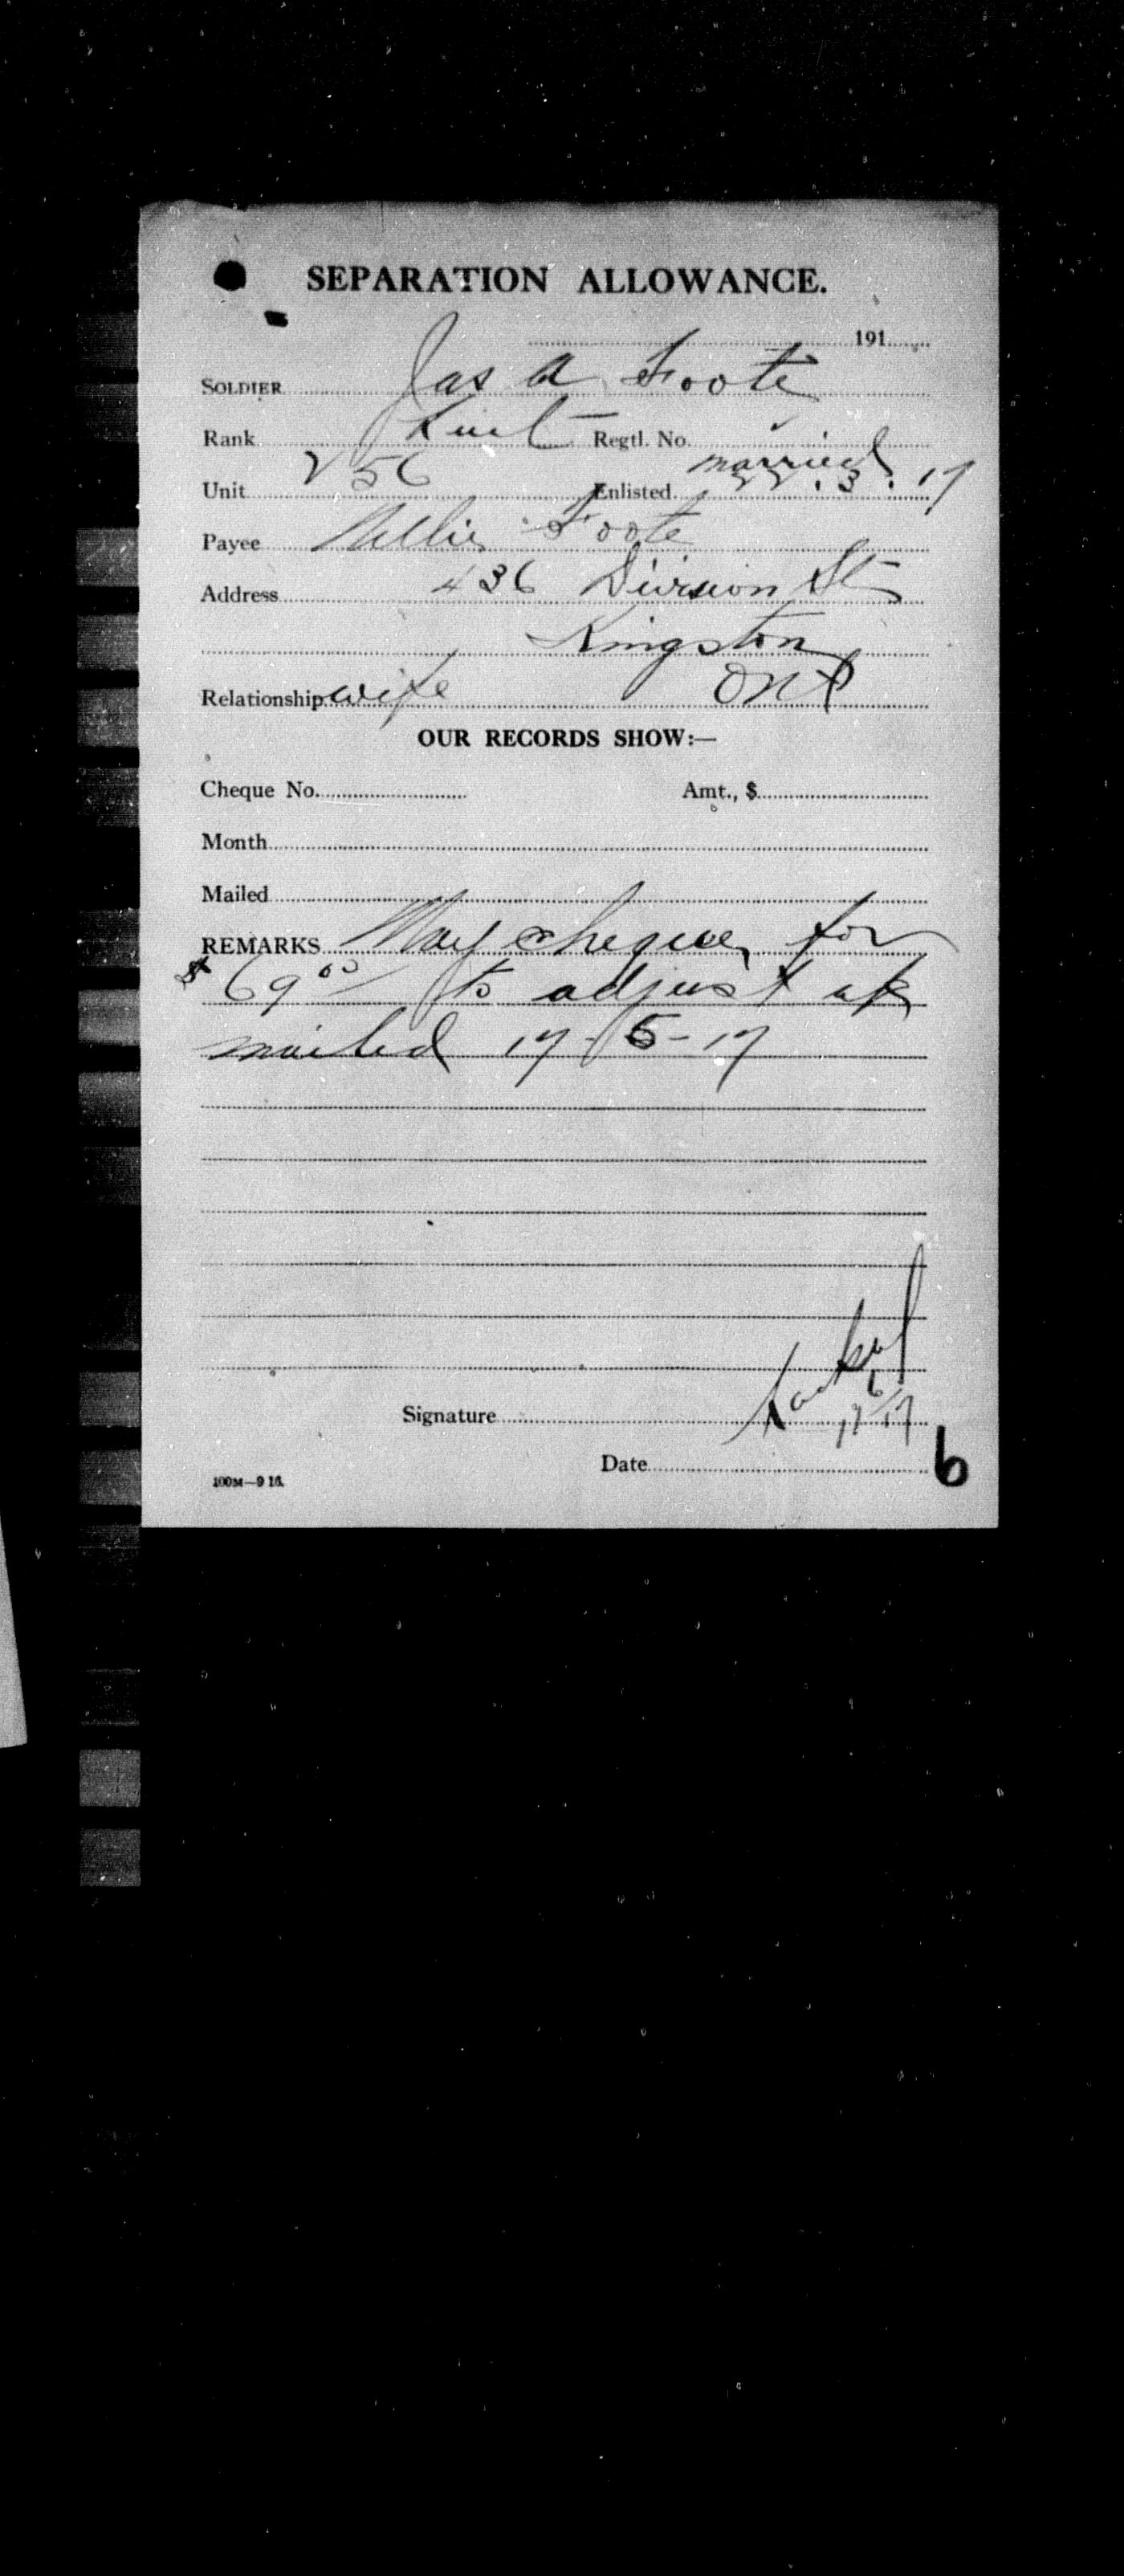 SEPARATION ALLOWANCE.
191
SOLDIER Jas A Foote
Rank Lieut Regtl. No.
married
Unit 256 Enlisted 22.3.17
Payee Nellie Foote
Address 436 Division St
Kingston
Relationship wife Ont
OUR RECORDS SHOW:—
Cheque No. Amt., $
Month
Mailed
REMARKS May cheque for
$69.00/ to adjust a/c
mailed 17-5-17
17/6/17
Signature
Date
6
100M—9 16.